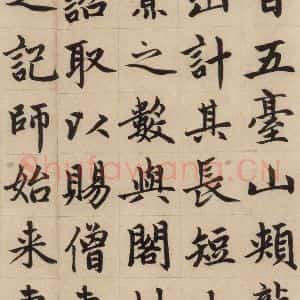 五臺山
計其長短
之數與閣
詔取以賜僧
記師始来
Shufawang.CN